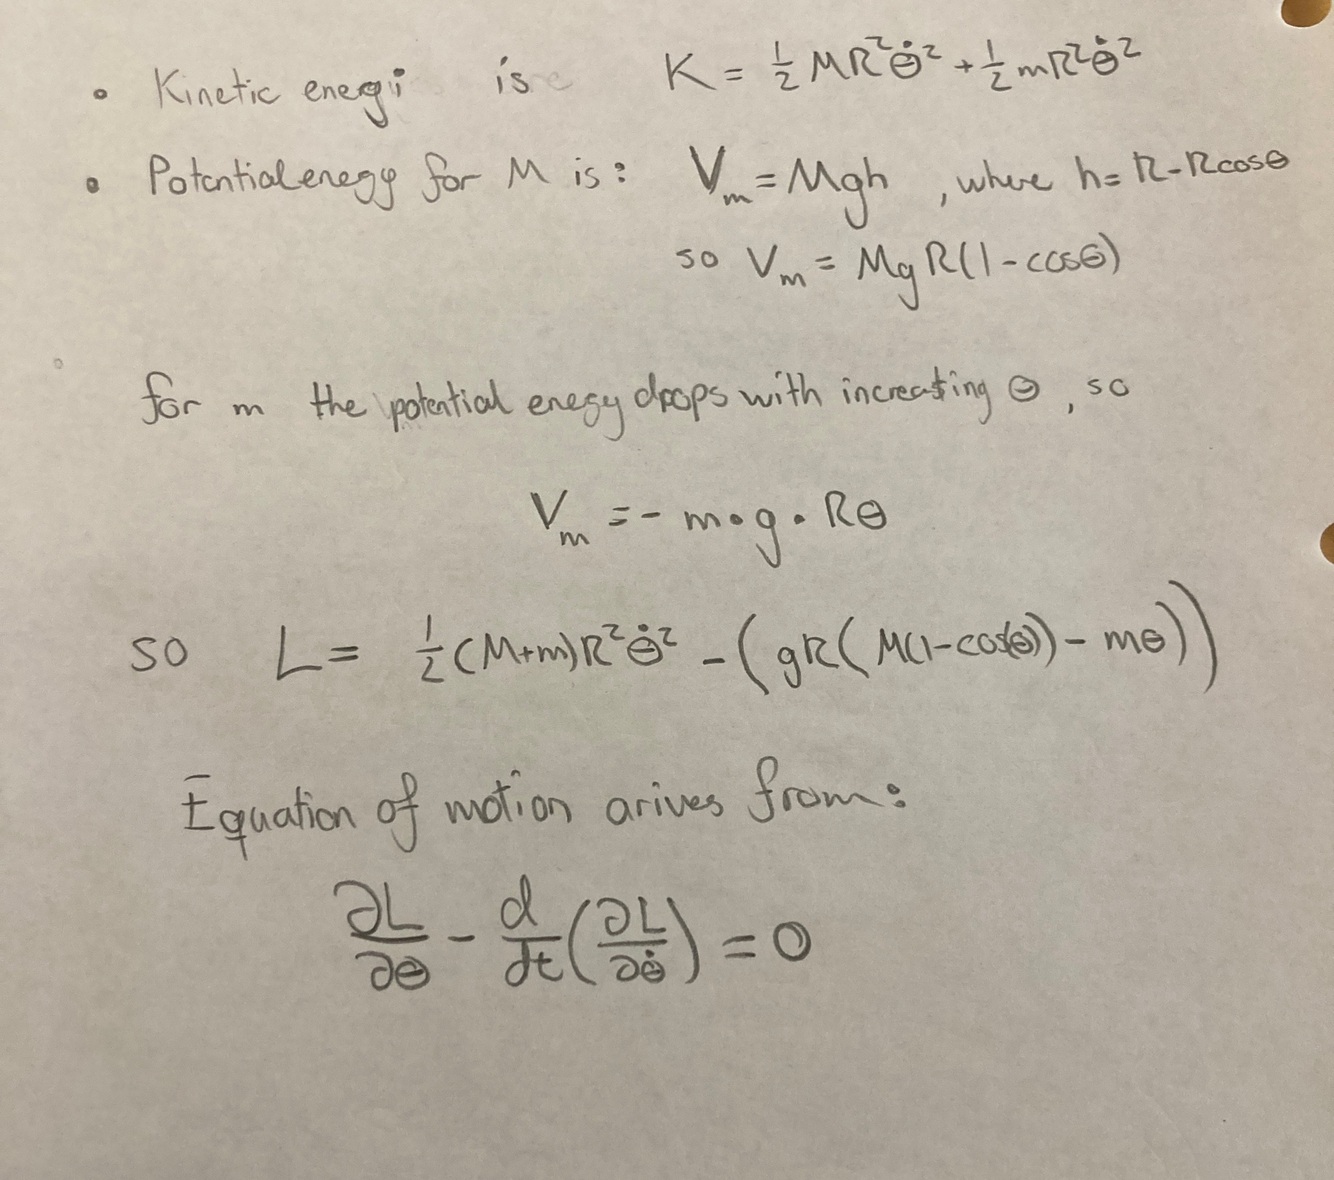 • Kinetic energi is K = ½ MR²θ̇² + ½ mR²θ̇²
• Potential enegy for M is: Vₘ = Mgh , where h = R - Rcosθ
so Vₘ = MgR(1 - cosθ)
for m the potential enegy drops with increasing θ , so
Vₘ = - m · g · Rθ
so L = ½ (M+m)R²θ̇² - (gR(M(1-cos(θ)) - mθ))
Equation of motion arives from:
∂L/∂θ - d/dt(∂L/∂θ̇) = 0